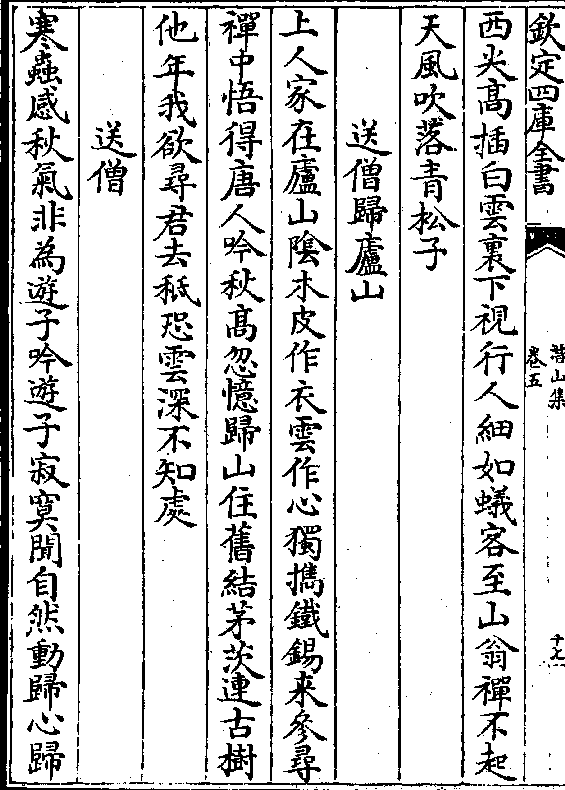 欽定四庫全書
潛山集
卷五
十七
西尖髙插白雲裏下視行人細如蟻客至山翁禪不起
天風吹落青松子
送僧歸廬山
上人家在廬山陰木皮作衣雲作心獨擕鐵錫来參尋
禪中悟得唐人吟秋髙忽憶歸山住舊結茅茨連古樹
他年我欲尋君去秪恐雲深不知處
送僧
寒蟲感秋氣非為遊子吟遊子寂寞聞自然動歸心歸